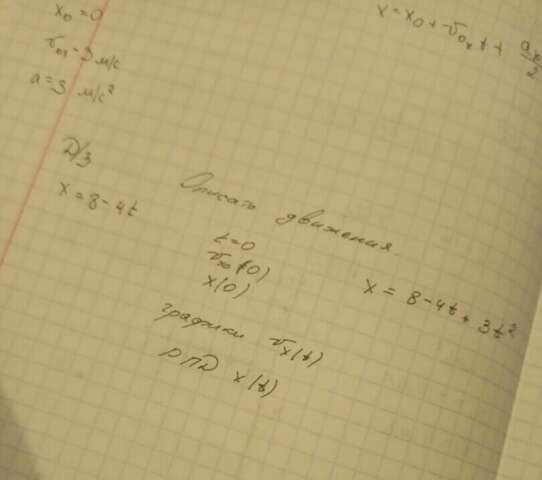 x₀ = 0
v₀ₓ = 3 м/с
a = 3 м/с²
x = x₀ + v₀ₓ t +
Д/з
x = 8 - 4t
Описать движения.
t = 0
x(0)
x = 8 - 4t + 3t²
графики vₓ(t)
x(t)